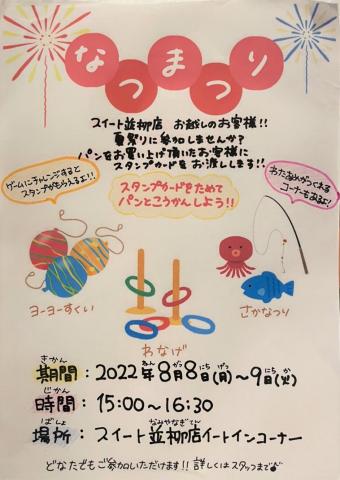 なつまつり
スイート並柳店 お越しのお客様!!
夏祭りに参加しませんか?
パンをお買い上げ頂いたお客様に
スタンプカードをお渡しします!!
ゲームにチャレンジすると
スタンプがもらえるよ!!
スタンプカードをためて
パンとこうかんしよう!!
わたあめがつくれる
コーナーもあるよ!
ヨーヨーすくい
わなげ
さかなつり
きかん
期間:2022年8月8日(月)~9日(火)
じかん
時間:15:00~16:30
ばしょ なみやなぎてん
場所:スイート並柳店イートインコーナー
どなたでもご参加いただけます!!詳しくはスタッフまで♪